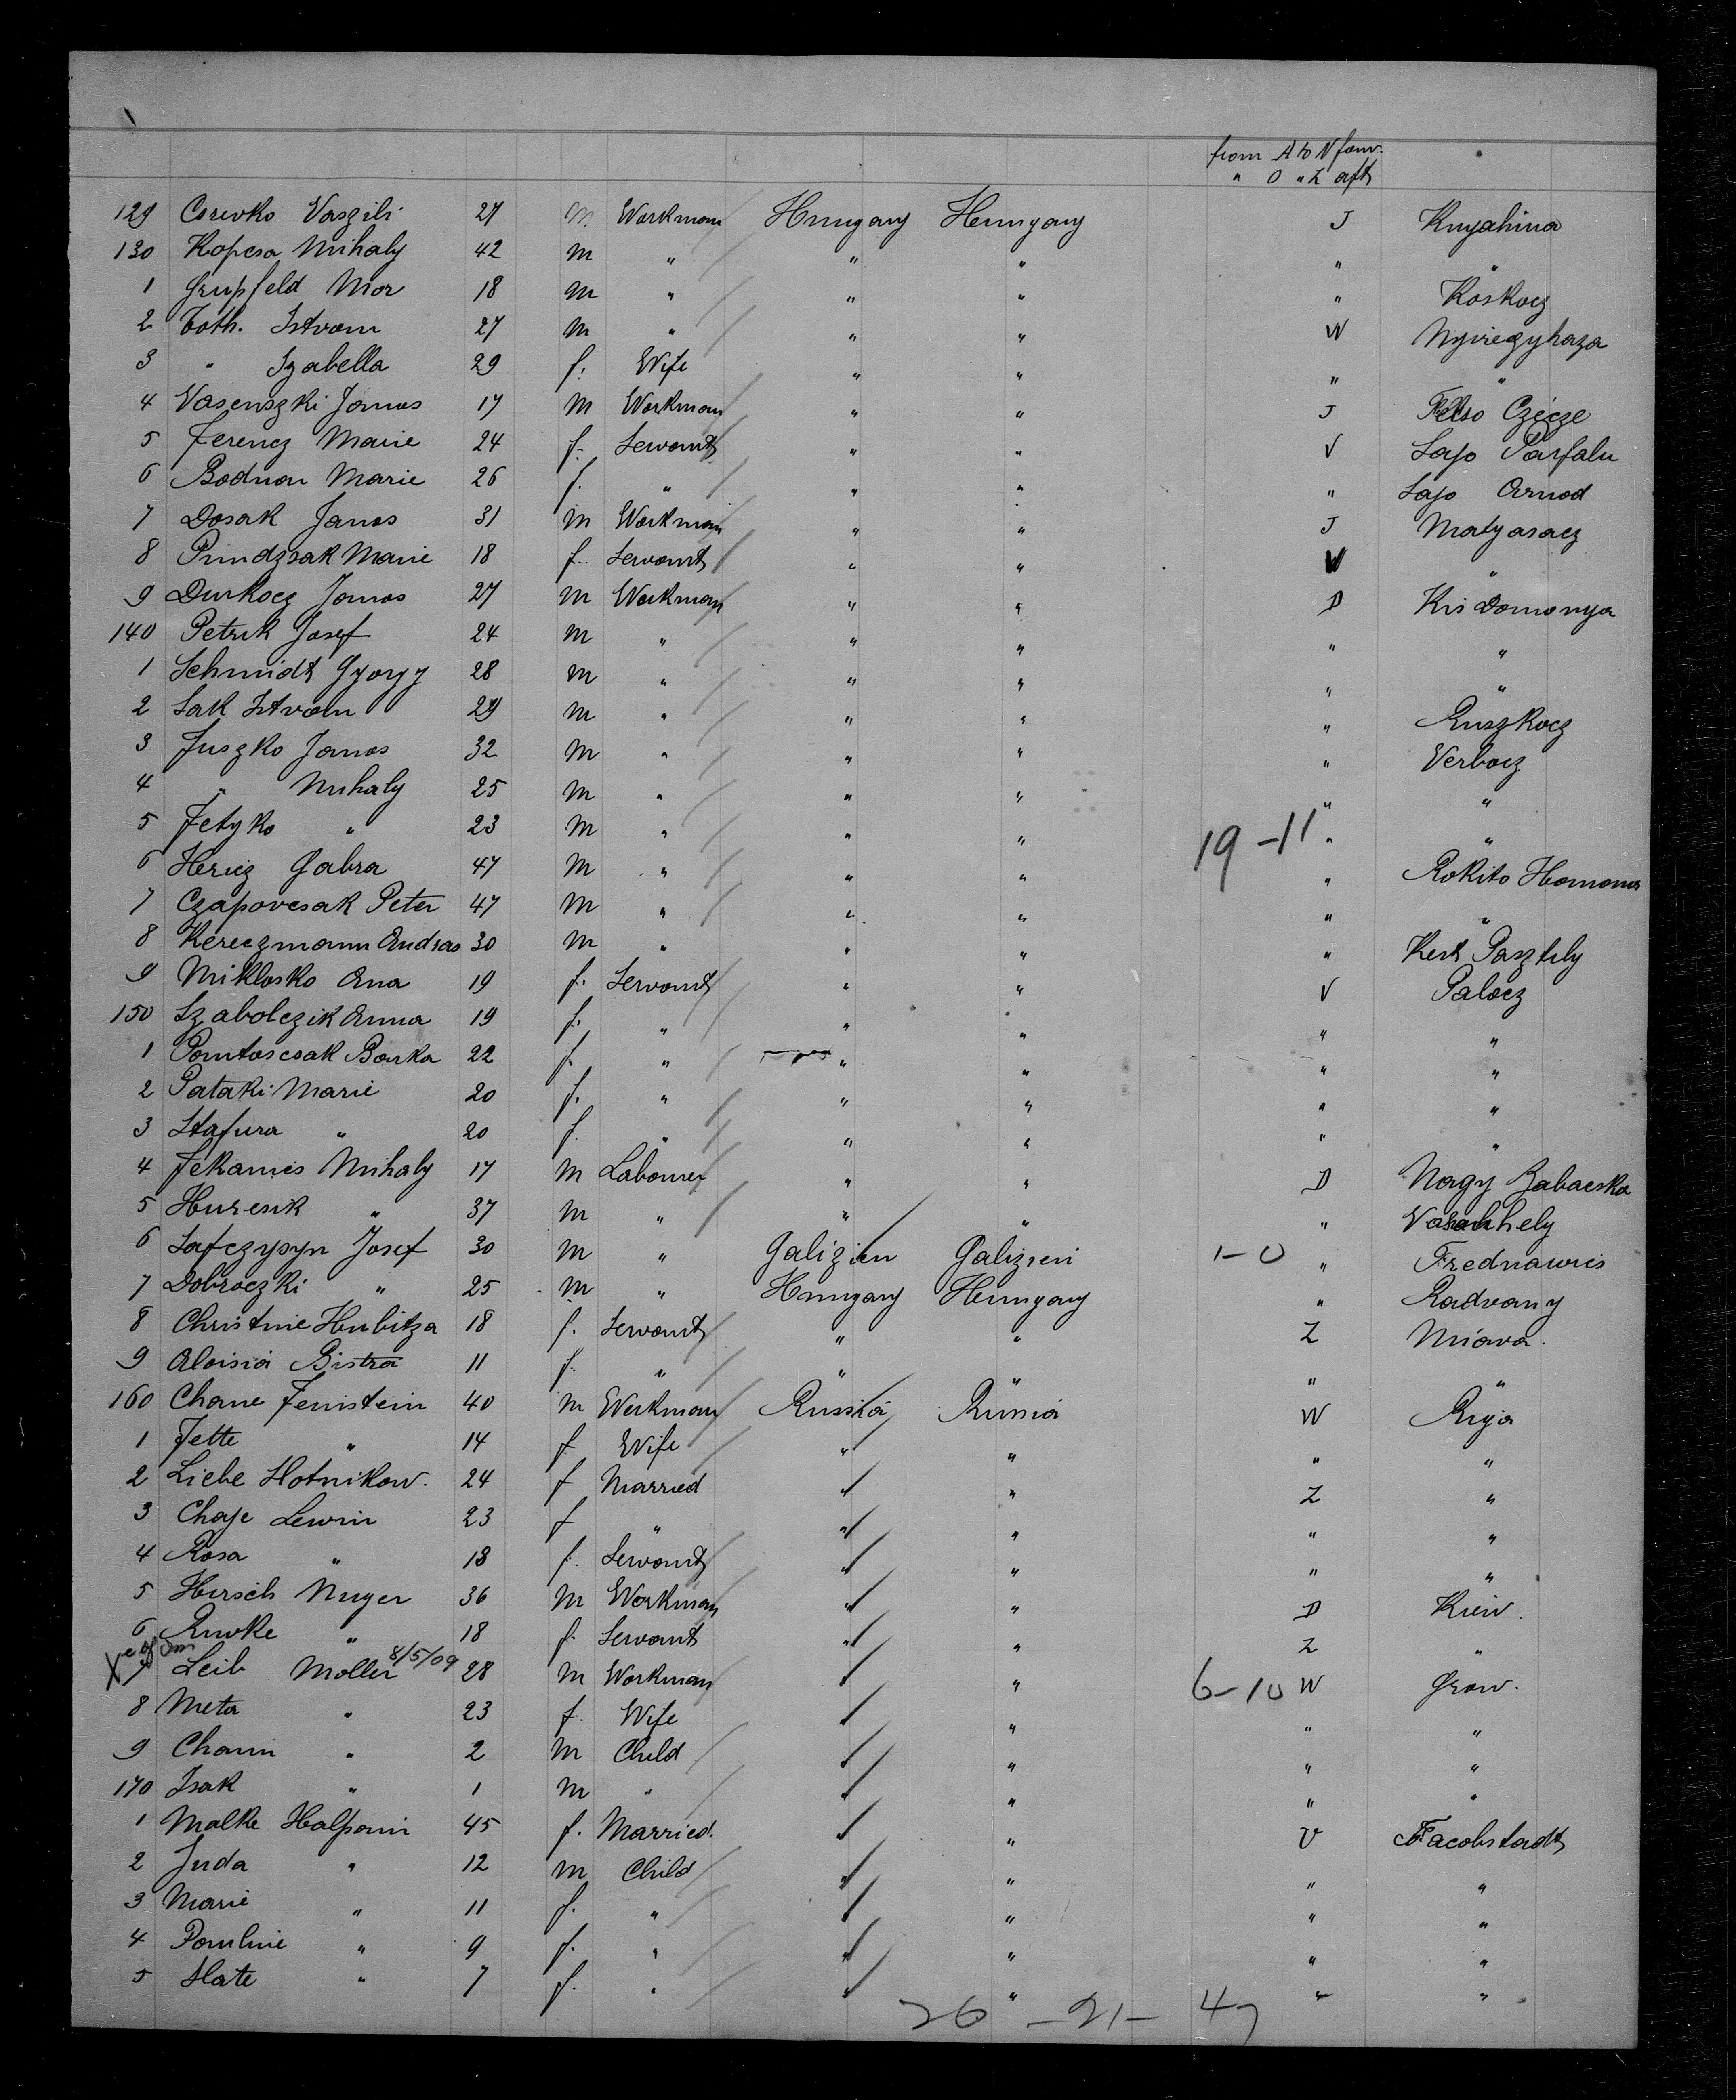 from A to N forw.
" O " Z aft
129 Csrevko Vaszili 27 m. Workman Hungary Hungary J Knyahina
130 Kopcsa Mihaly 42 m " " " " "
1 Grupfeld Mor 18 m " " " " Koskocz
2 Toth. Istvan 27 m " " " W Nyiregyhaza
3 " Izabella 29 f. Wife " " " "
4 Vasenszki Janos 17 m Workman " " J Felso Czécze
5 Ferencz Marie 24 f. Servant " " V Sajo Palfalu
6 Bodnar Marie 26 f. " " " " Sajo Arnod
7 Dosak Janos 31 m Workman " " J Matyasocz
8 Pundzsak Marie 18 f. Servant " " V "
9 Durkocz Janos 27 m Workman " " D Kis Domonya
140 Petrik Josef 24 m " " " " "
1 Schmidt Gyorgy 28 m " " " " "
2 Sak Istvan 29 m " " " " Ruszkocz
3 Juszko Janos 32 m " " " " Verbocz
4 " Mihaly 25 m " " " " "
5 Fetyko " 23 m " " " 19-11 " "
6 Hericz Gabra 47 m " " " " Rokito Homona
7 Czapovcsak Peter 47 m " " " " "
8 Kereczmann Andras 30 m " " " " Kert Pasztely
9 Miklosko Ana 19 f. Servant " " V Palocz
150 Szabolczik Anna 19 f. " " " " "
1 Pantoscsak Borka 22 f. " " " " "
2 Pataki Marie 20 f. " " " " "
3 Stafura " 20 f. " " " " "
4 Jekamis Mihaly 17 m Labourer " " D Nagy Zabacska
5 Huresik " 37 m " " " " Vasarhely
6 Safczysyn Josef 30 m " Galizien Galizien 1-0 " Frednawies
7 Dobroczki " 25 m " Hungary Hungary " Radvany
8 Christine Hubitza 18 f. Servant " " Z Miava.
9 Aloisia Bistra 11 f. " " " " "
160 Chane Feinstein 40 m Workman Russia Russia W Riga
1 Jette " 14 f Wife " " " "
2 Liebe Slotnikow. 24 f Married " " Z "
3 Chaje Lewin 23 f " " " " "
4 Rosa " 18 f. Servant " " " "
5 Hirsch Nuger 36 m Workman " " D Kiew.
6 Riwke " 18 f. Servant " " Z "
7 Leib Moller 8/5/09 28 m Workman " " 6-10 W Grow.
8 Meta " 23 f. Wife " " " "
9 Chaim " 2 m Child " " " "
170 Isak " 1 m " " " " "
1 Malke Halpern 45 f. Married. " " V Jacobstadt
2 Juda " 12 m Child " " " "
3 Marie " 11 f. " " " " "
4 Pauline " 9 f. " " " " "
5 Slate " 7 f. " " " " "
26 - 21 - 47